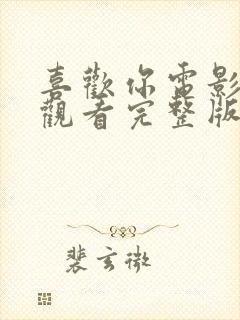 喜歡你電影
觀看完整版
裴玄微